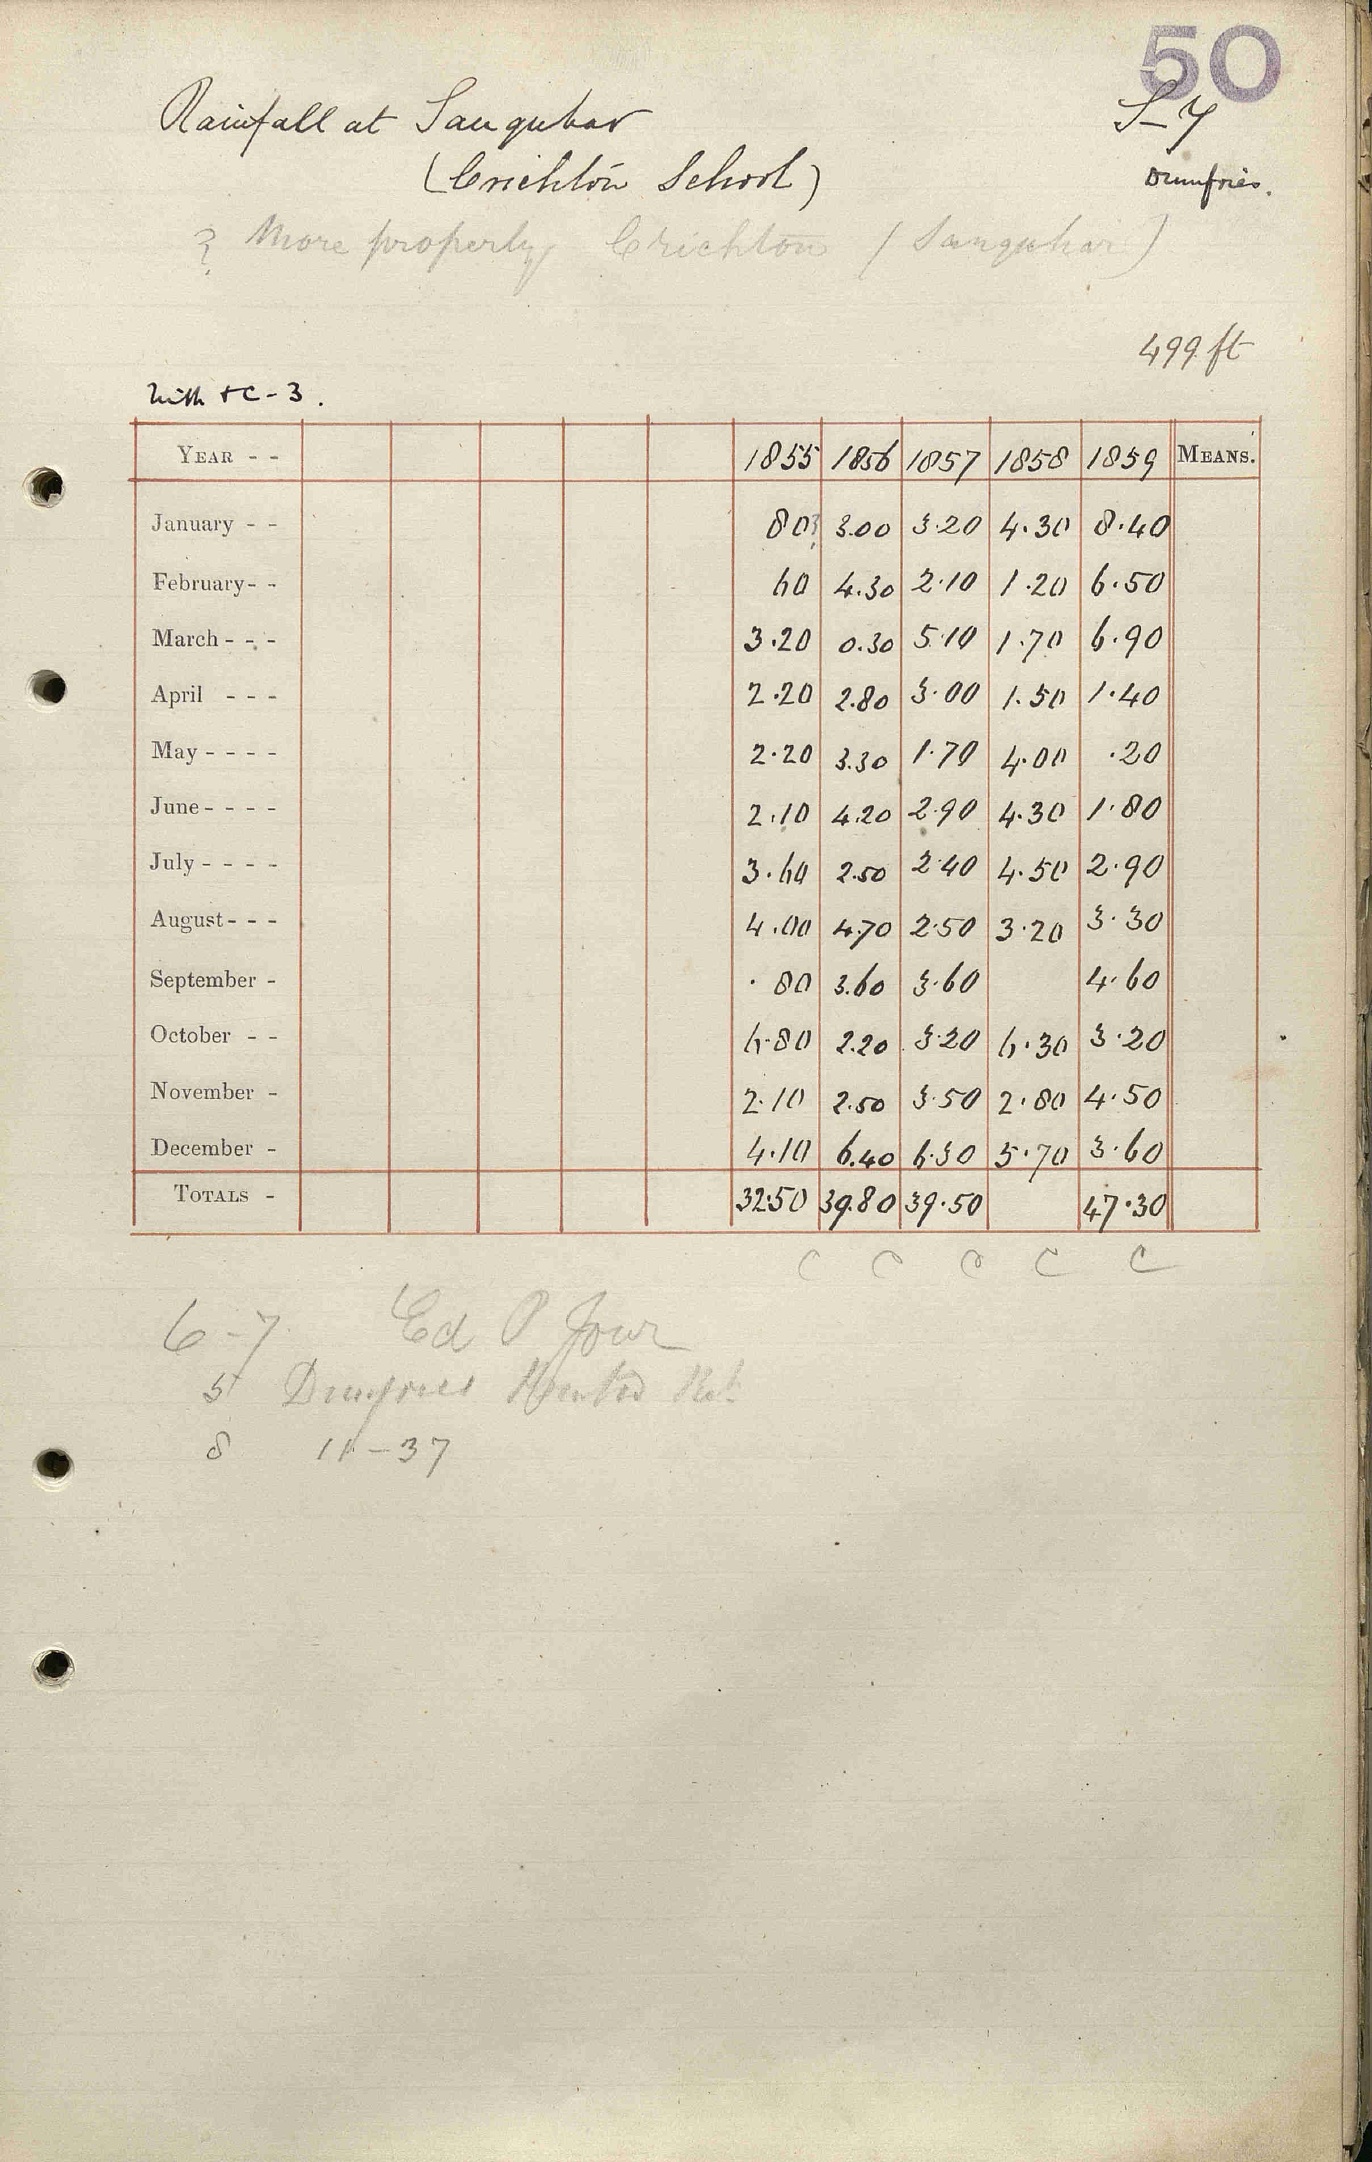 50
Rainfall at Sanquhar
S-7
(Crichton School)
Dumfries.
? More properly Crichton (Sanquhar)
499 ft
with + C-3.
YEAR - - 1855 1856 1857 1858 1859 MEANS.
January - - 80? 3.00 3.20 4.30 8.40
February - - 60 4.30 2.10 1.20 6.50
March - - - 3.20 0.30 5.10 1.70 6.90
April - - - 2.20 2.80 3.00 1.50 1.40
May - - - - 2.20 3.30 1.70 4.00 .20
June - - - - 2.10 4.20 2.90 4.30 1.80
July - - - - 3.60 2.50 2.40 4.50 2.90
August - - - 4.00 4.70 2.50 3.20 3.30
September - .80 3.60 3.60 4.60
October - - 6.80 2.20 3.20 6.30 3.20
November - 2.10 2.50 3.50 2.80 4.50
December - 4.10 6.40 6.30 5.70 3.60
TOTALS - 32.50 39.80 39.50 47.30
C C C C C
6-7 Ed P Jour
5 Dumfries
8 11-37